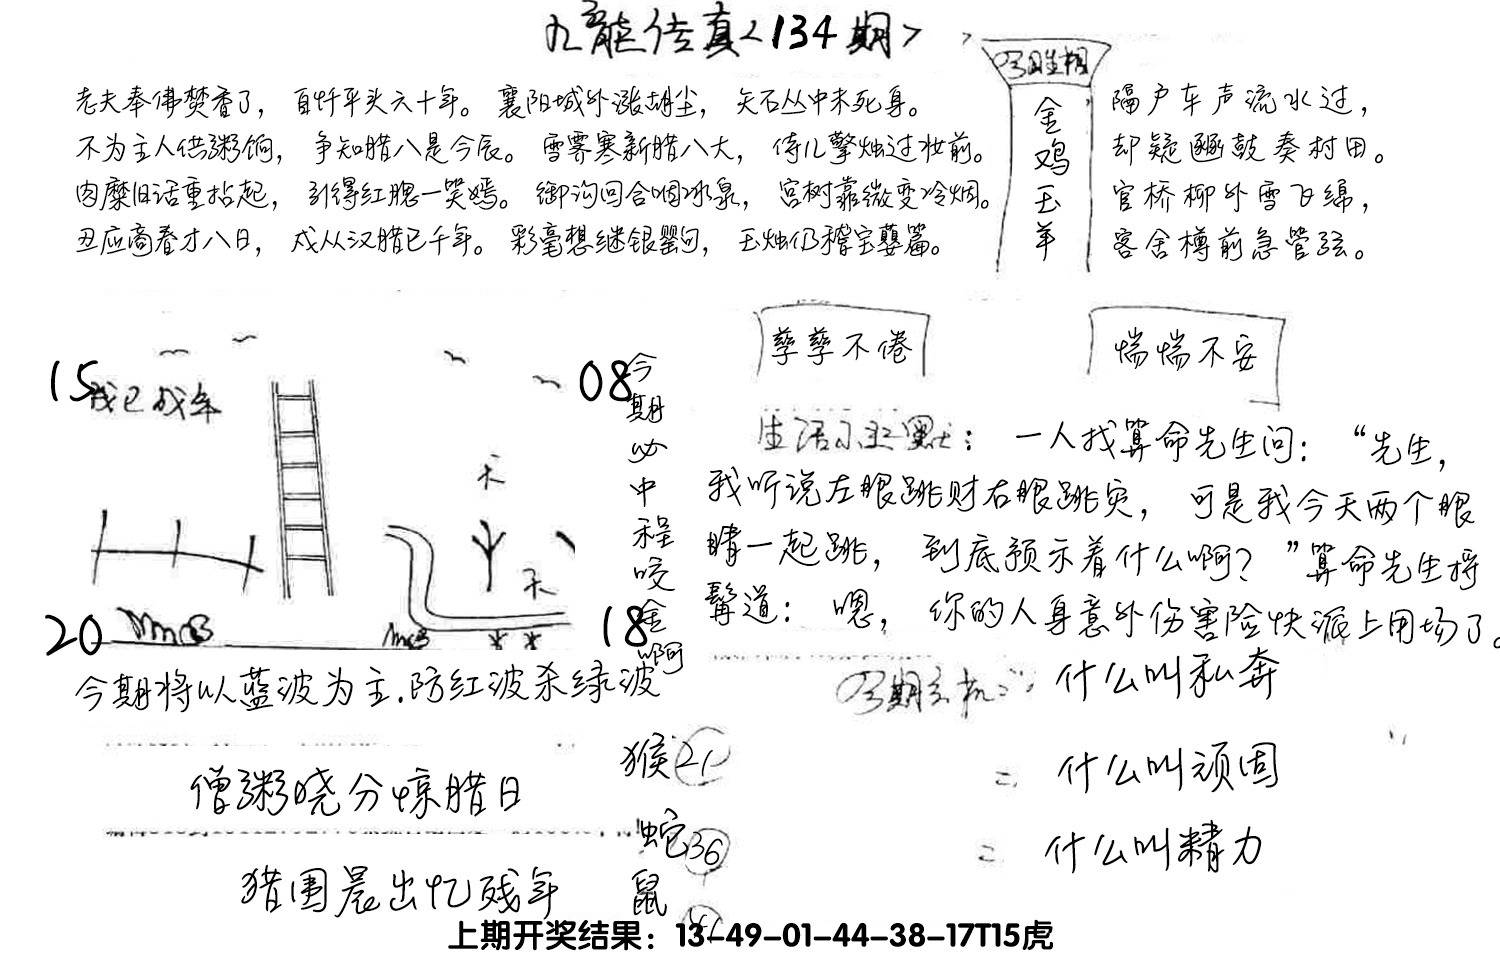 九龙传真<134期>
老夫奉佛焚香了，百忏平头六十年。襄阳城外涨胡尘，矢石丛中未死身。
不为主人供粥饷，争知腊八是今辰。雪霁寒新腊八天，侍儿擎烛过妆前。
肉糜旧话重拈起，引得红腮一笑嫣。御沟回合咽冰泉，宫树靠微变冷烟。
丑应商春才八日，戍从汉腊已千年。彩毫想继银罂句，玉烛仍稽宝蘖篇。
今期生相
金鸡玉羊
隔户车声流水过，
却疑豳鼓奏村田。
官桥柳外雪飞绵，
客舍樽前急管弦。
15
08
我已成年
天
天
20
18
今期必中程咬金啊
今期将以蓝波为主.防红波杀绿波
孳孳不倦
惴惴不安
生活小幽默：一人找算命先生问：“先生，
我听说左眼跳财右眼跳灾，可是我今天两个眼
睛一起跳，到底预示着什么啊？”算命先生捋
髯道：嗯，你的人身意外伤害险快派上用场了。
今期玄机
什么叫私奔
什么叫顽固
什么叫精力
僧粥晓分惊腊日
猎围晨出忆残年
猴21
蛇36
鼠
上期开奖结果：13-49-01-44-38-17T15虎